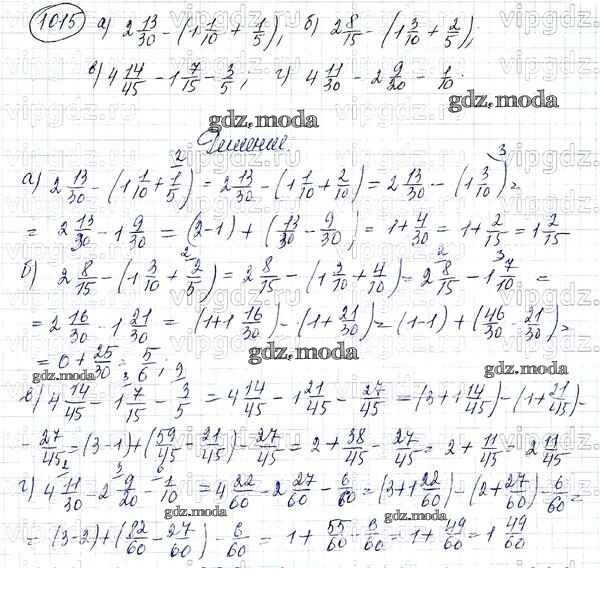 1015 а) 2 13/30 − (1 1/10 + 1/5); б) 2 8/15 − (1 3/10 + 2/5);
в) 4 14/45 − 1 7/15 − 3/5; г) 4 11/30 − 2 9/20 − 1/10.
gdz.moda
gdz.moda
Решение.
а) 2 13/30 − (1 1/10 + 1/5) = 2 13/30 − (1 1/10 + 2/10) = 2 13/30 − (1 3/10) =
= 2 13/30 − 1 9/30 = (2−1) + (13/30 − 9/30) = 1 + 4/30 = 1 + 2/15 = 1 2/15
б) 2 8/15 − (1 3/10 + 2/5) = 2 8/15 − (1 3/10 + 4/10) = 2 8/15 − 1 7/10 =
= 2 16/30 − 1 21/30 = (1+1 16/30) − (1 + 21/30) = (1−1) + (46/30 − 21/30) =
= 0 + 25/30 = 5/6;
gdz.moda
gdz.moda
gdz.moda
в) 4 14/45 − 1 7/15 − 3/5 = 4 14/45 − 1 21/45 − 27/45 = (3+1 14/45) − (1 + 21/45) −
− 27/45 = (3−1) + (59/45 − 21/45) − 27/45 = 2 + 38/45 − 27/45 = 2 + 11/45 = 2 11/45
г) 4 11/30 − 2 9/20 − 1/10 = 4 22/60 − 2 27/60 − 6/60 = (3+1 22/60) − (2 + 27/60) − 6/60 =
gdz.moda
= (3−2) + (82/60 − 27/60) − 6/60 = 1 + 55/60 − 6/60 = 1 + 49/60 = 1 49/60
gdz.moda